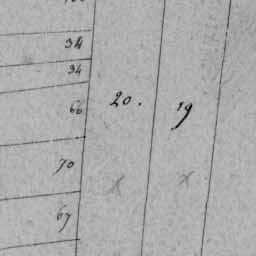 34
34
66 20. 19
70
x x
67